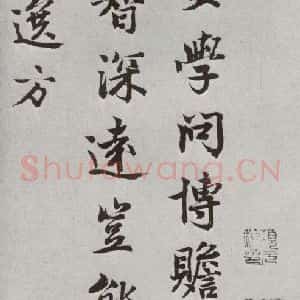 學問博贍
智深遠豈能
選方
Shufawang.CN